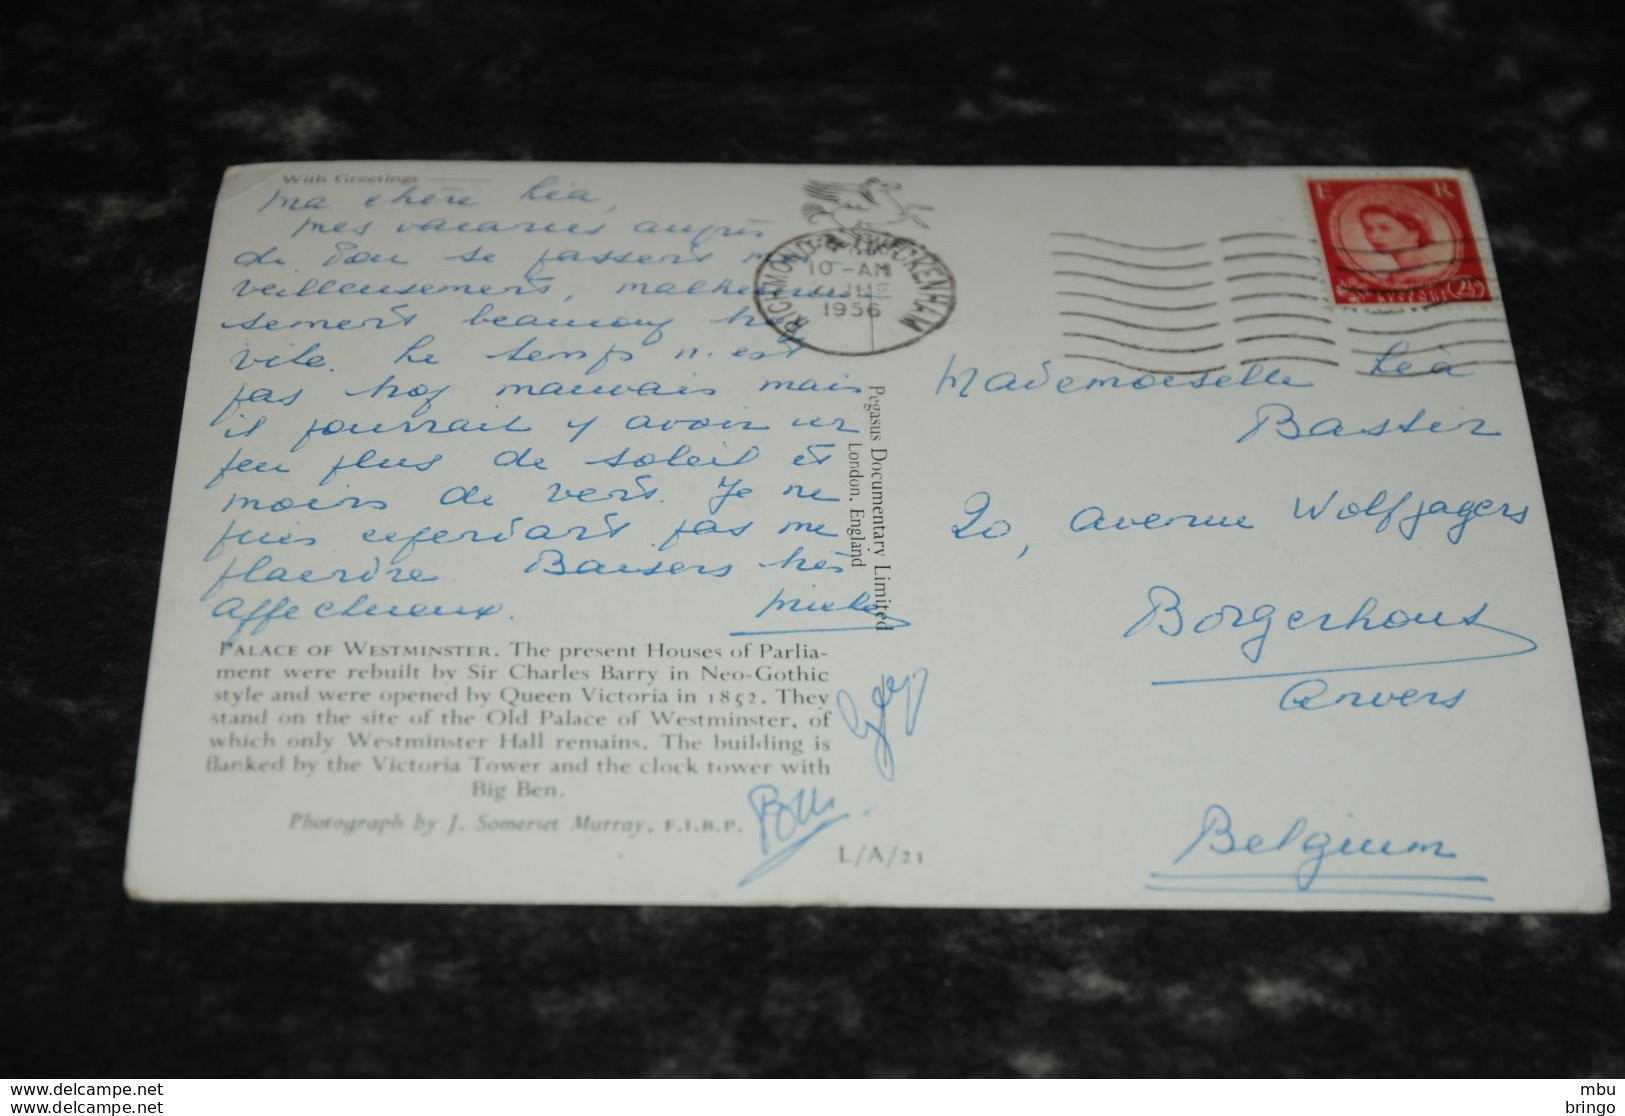 With Greetings
Ma chère Léa,
Mes vacances auprès
de Pon se passent mer
veilleusement, malheureu
sement beaucoup trop
vite. Le temps n'est
pas trop mauvais mais
il pourrait y avoir un
peu plus de soleil et
moins de vent. Je ne
puis cependant pas me
plaindre. Baisers très
affectueux.
PALACE OF WESTMINSTER. The present Houses of Parlia-
ment were rebuilt by Sir Charles Barry in Neo-Gothic
style and were opened by Queen Victoria in 1852. They
stand on the site of the Old Palace of Westminster, of
which only Westminster Hall remains. The building is
flanked by the Victoria Tower and the clock tower with
Big Ben.
Photograph by J. Somerset Murray, F.I.B.P.
L/A/21
Pegasus Documentary Limited
London, England
RICHMOND & TWICKENHAM
10-AM
JNE
1956
E R
2½
Mademoiselle Léa
Bastin
20, avenue Wolfjagers
Borgerhout
Anvers
Belgium
mbu
www.delcampe.net
bringo
www.delcampe.net